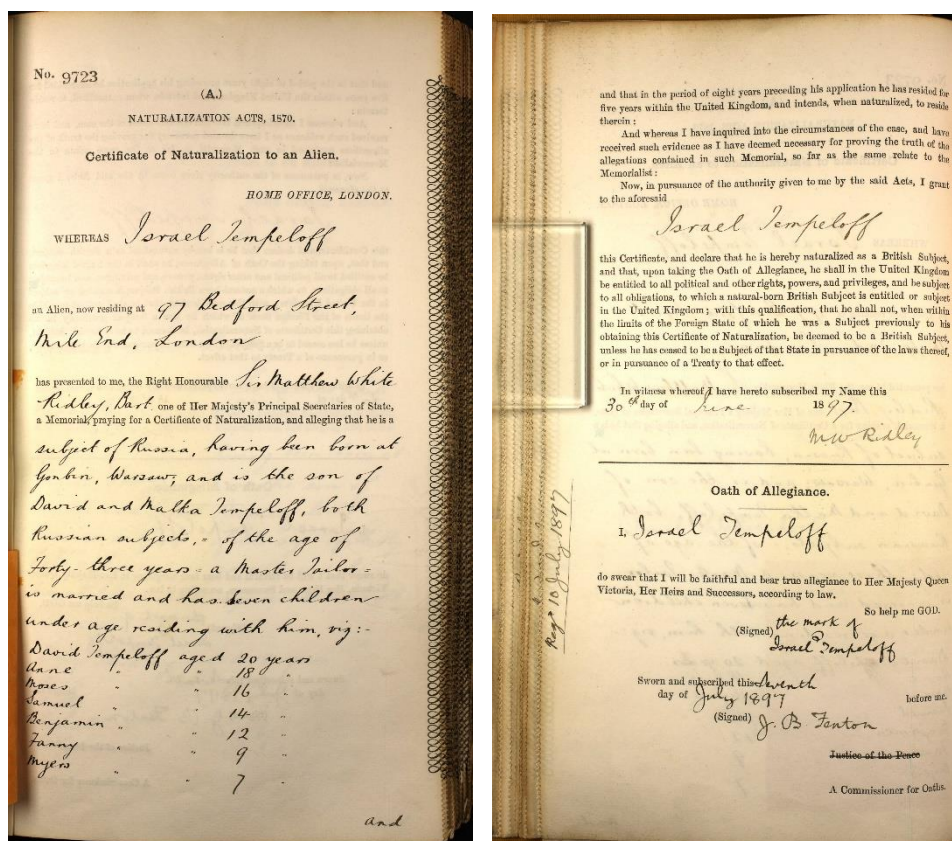 No. 9723
(A.)
NATURALIZATION ACTS, 1870.
Certificate of Naturalization to an Alien.
HOME OFFICE, LONDON.
WHEREAS Israel Tempeloff
an Alien, now residing at 97 Bedford Street,
Mile End, London
has presented to me, the Right Honourable Sir Matthew White
Ridley, Bart. one of Her Majesty's Principal Secretaries of State,
a Memorial, praying for a Certificate of Naturalization, and alleging that he is a
subject of Russia, having been born at
Gonbin, Warsaw, and is the son of
David and Malka Tempeloff, both
Russian subjects, - of the age of
Forty-three years - a Master Tailor -
is married and has seven children
under age residing with him, viz:-
David Tempeloff aged 20 years
Anne " " 18 "
Moses " " 16 "
Samuel " " 14 "
Benjamin " " 12 "
Fanny " " 9 "
Myers " " 7 "
and
and that in the period of eight years preceding his application he has resided for
five years within the United Kingdom, and intends, when naturalized, to reside
therein:
And whereas I have inquired into the circumstances of the case, and have
received such evidence as I have deemed necessary for proving the truth of the
allegations contained in such Memorial, so far as the same relate to the
Memorialist:
Now, in pursuance of the authority given to me by the said Acts, I grant
to the aforesaid
Israel Tempeloff
this Certificate, and declare that he is hereby naturalized as a British Subject,
and that, upon taking the Oath of Allegiance, he shall in the United Kingdom
be entitled to all political and other rights, powers, and privileges, and be subject
to all obligations, to which a natural-born British Subject is entitled or subject
in the United Kingdom; with this qualification, that he shall not, when within
the limits of the Foreign State of which he was a Subject previously to his
obtaining this Certificate of Naturalization, be deemed to be a British Subject,
unless he has ceased to be a Subject of that State in pursuance of the laws thereof,
or in pursuance of a Treaty to that effect.
In witness whereof I have hereto subscribed my Name this
30th day of June 1897.
MW Ridley
Regd 10 July 1897
Oath of Allegiance.
I, Israel Tempeloff
do swear that I will be faithful and bear true allegiance to Her Majesty Queen
Victoria, Her Heirs and Successors, according to law.
So help me GOD.
(Signed) the mark of
Israel Tempeloff
Sworn and subscribed this seventh
day of July 1897 before me.
(Signed) J. B Fenton
Justice of the Peace
A Commissioner for Oaths.